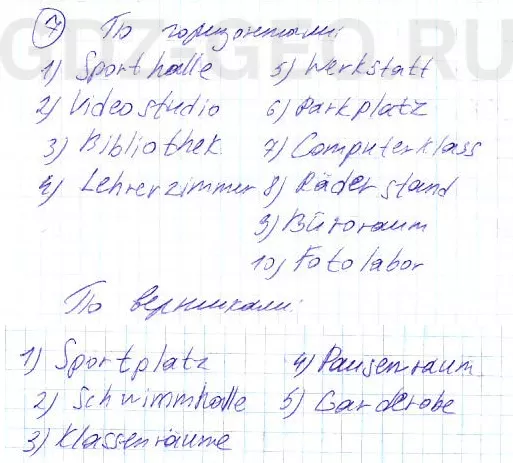 7) По горизонтали:
1) Sporthalle
2) Videostudio
3) Bibliothek
4) Lehrerzimmer
5) Werkstatt
6) Parkplatz
7) Computerklass
8) Räderstand
9) Büroraum
10) Fotolabor
По вертикали:
1) Sportplatz
2) Schwimmhalle
3) Klassenräume
4) Pausenraum
5) Garderobe